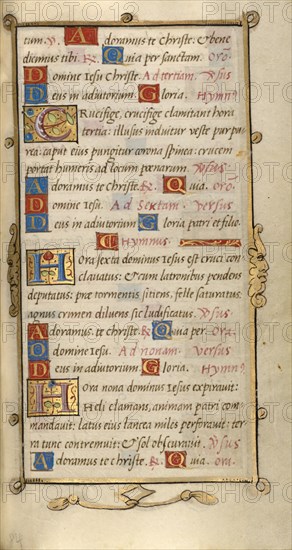 tum. V. Adoramus te Christe. & bene
dicimus tibi. R. Quia per sanctam. Orō.
Domine Iesu Christe. Ad tertiam. Vsus
Deus in adiutorium. Gloria. Hymn9
Crucifige, crucifige clamitant hora
tertia: illusus induitur veste purpu
rea: caput eius pungitur corona spinea: crucem
portat humeris ad locum poenarum. Vsus
Adoramus te Christe. R. Quia. Orō.
Domine Iesu. Ad Sextam. Versus
Deus in adiutorium Gloria patri et filio.
C Hymnus.
Hora sexta dominus Iesus est cruci con
clauatus: & cum latronibus pendens
deputatus: prae tormentis sitiens, felle saturatus
agnus crimen diluens sic ludificatus. Vsus
Adoramus. te christe. R. Quia per. Ora.
O domine Iesu. Ad nonam. Versus
Deus in adiutorium. Gloria. Hymn9
Hora nona dominus Iesus expirauit:
Heli clamans, animam patri com
mandauit: latus eius lancea miles perforauit: ter
ra tunc contremuit: & sol obscurauit. Vsus
Adoramus te christe. R. Quia. ora.